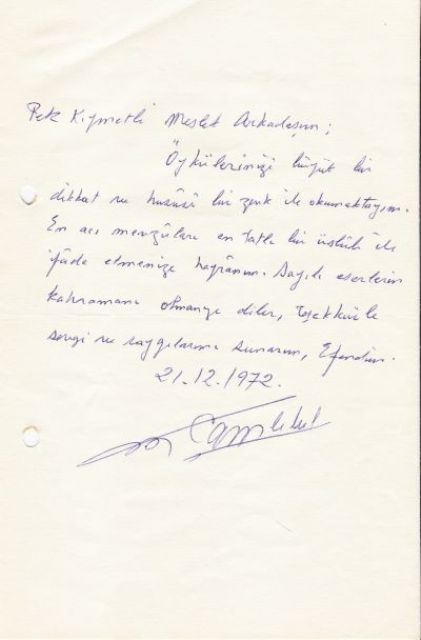 Pek Kıymetli Meslek Arkadaşım;
Öykülerinizi büyük bir
dikkat ve hususî bir zevk ile okumaktayım.
En acı mevzûları en tatlı bir üslûb ile
ifâde etmenize hayranım. Sayılı eserlerin
kahramanı olmanızı diler, teşekkürle
sevgi ve saygılarımı sunarım, Efendim.
21.12.1972.